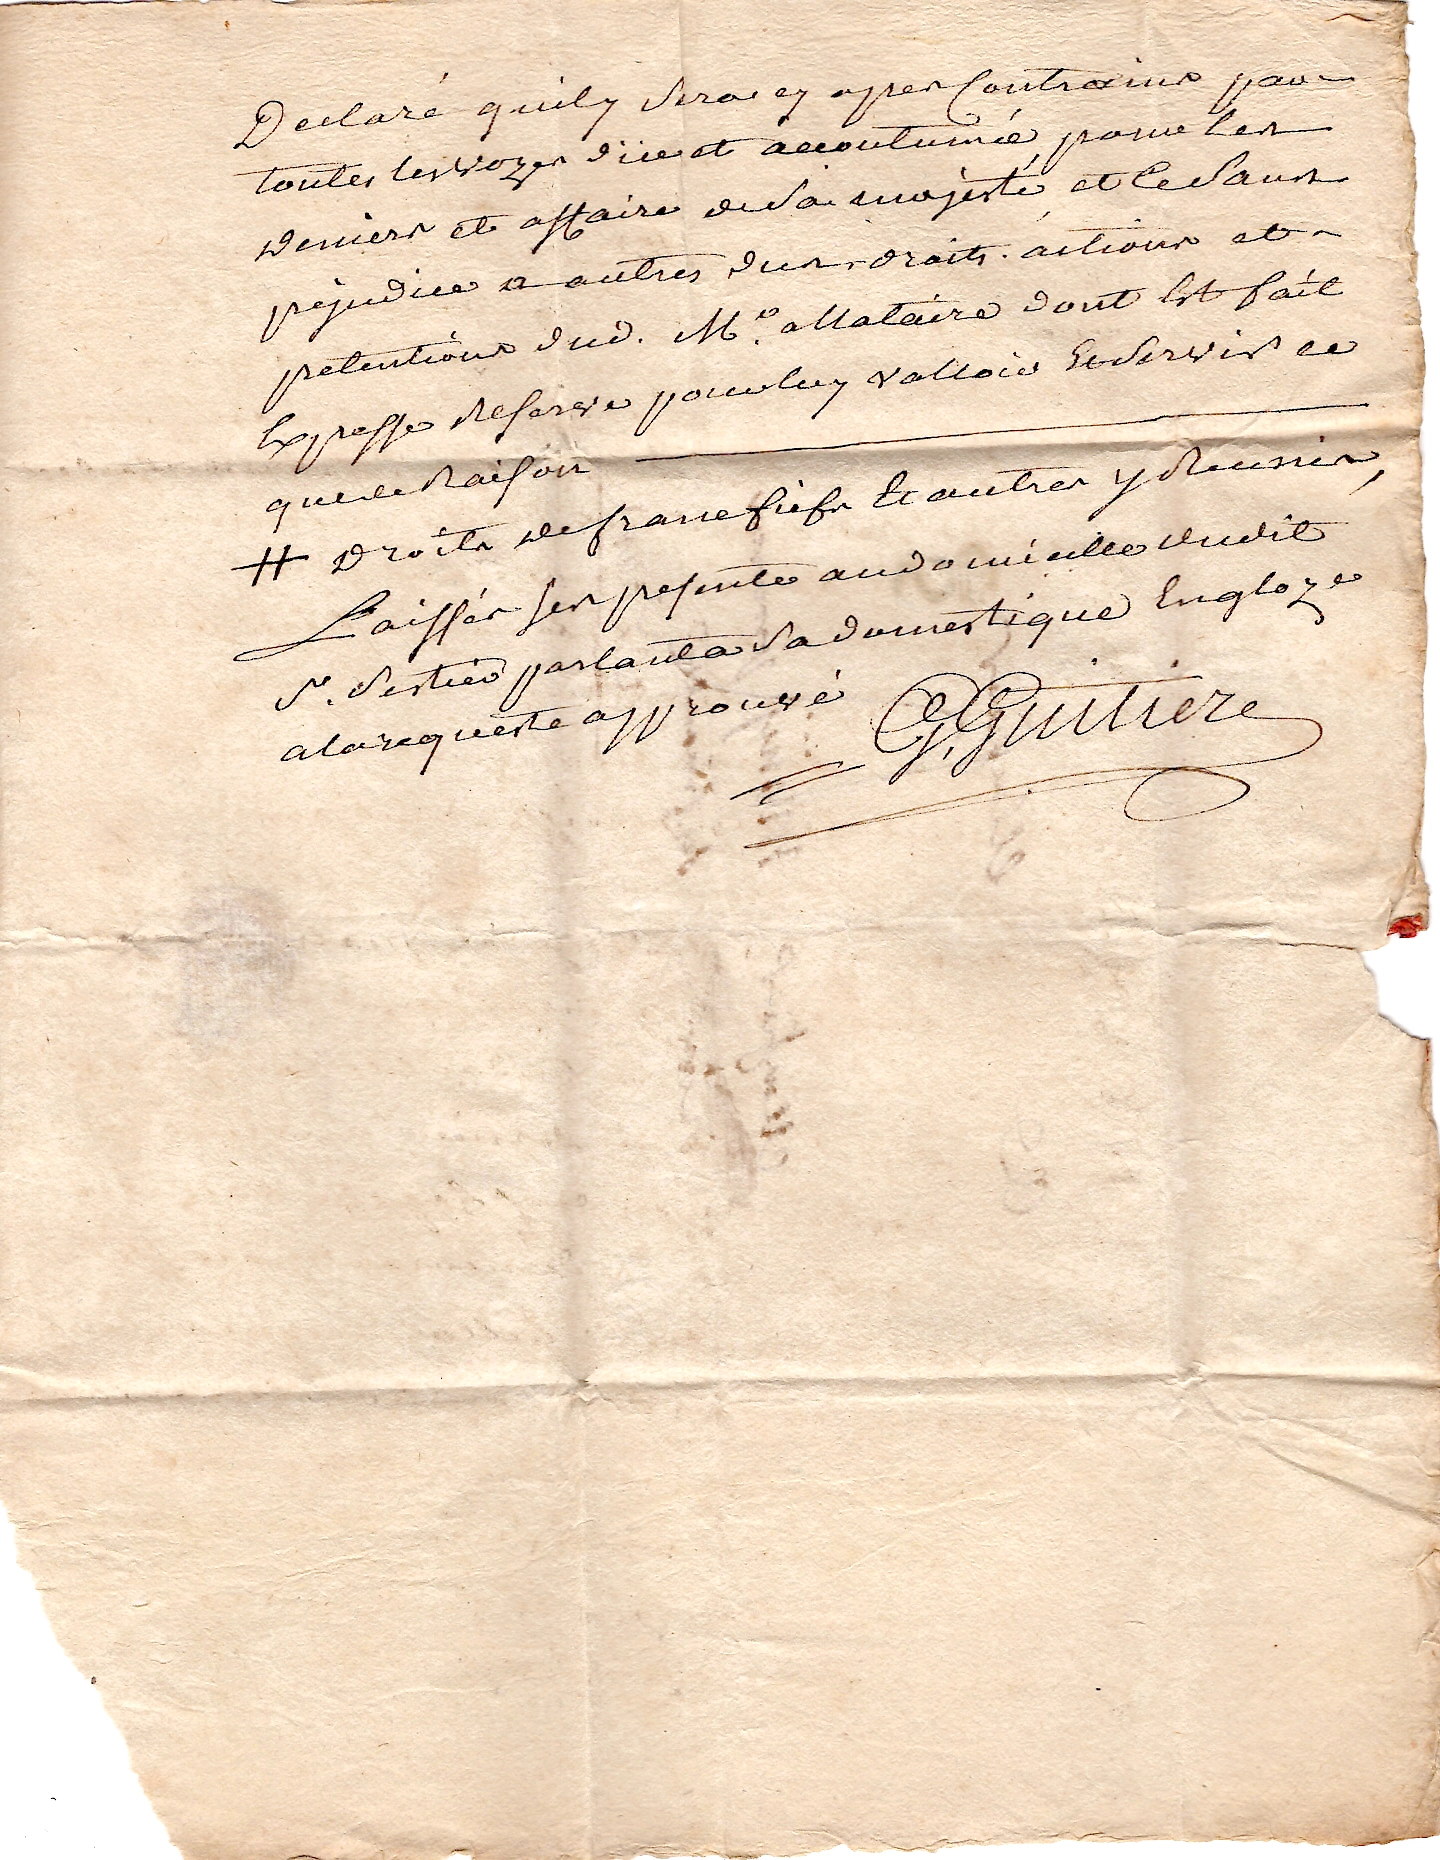 Declaré quil y sera cy apres Contraint par
toutes les voyes düe et accoutumée, pour les
deniers et affaire de sa majesté et Ce sans
prejudice a autres dus, droits, actions et
pretentions dud. Me. allataire dont Est fait
Expresse Reserve pour luy valloir Et servir ce
que de Raison
# Droits de franc fiefs Et autres y Reunis,
Laissés les presente au domicille dudit
Sr. Sestier parlant a sa domestique Engloze
a la requeste approuvé G. Guitiere